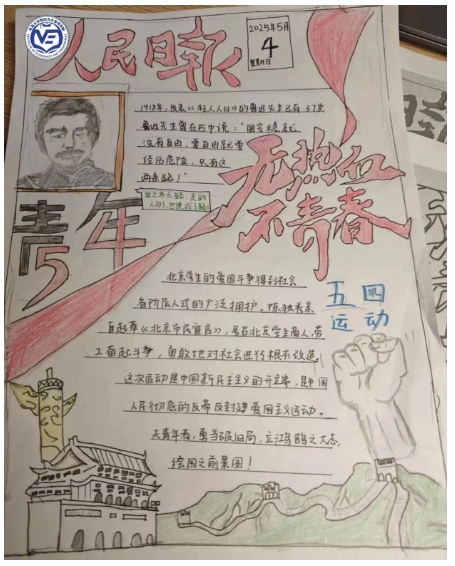 人民日报
2025年5月
4
星期日
1918年,发表《狂人日记》的鲁迅先生已有37岁
鲁迅先生曾在书中说:"
没有自由,要自由就要
经历危险,只有这
两条路!"
青年
5
无热血
不青春
北京学生的爱国斗争得到社会
各阶层人式的广泛拥护。陈独秀亲
自起草《北京市民宣言》,号召北京学生商人,劳
工奋起斗争,勇敢地对社会进行根本改造。
这次运动是中国新民主主义的开端,是中国
人民彻底的反帝反封建爱国主义运动。
夫青年者,勇当破旧局,立鸿鹄之大志,
绘国之前景图!
五四
运动